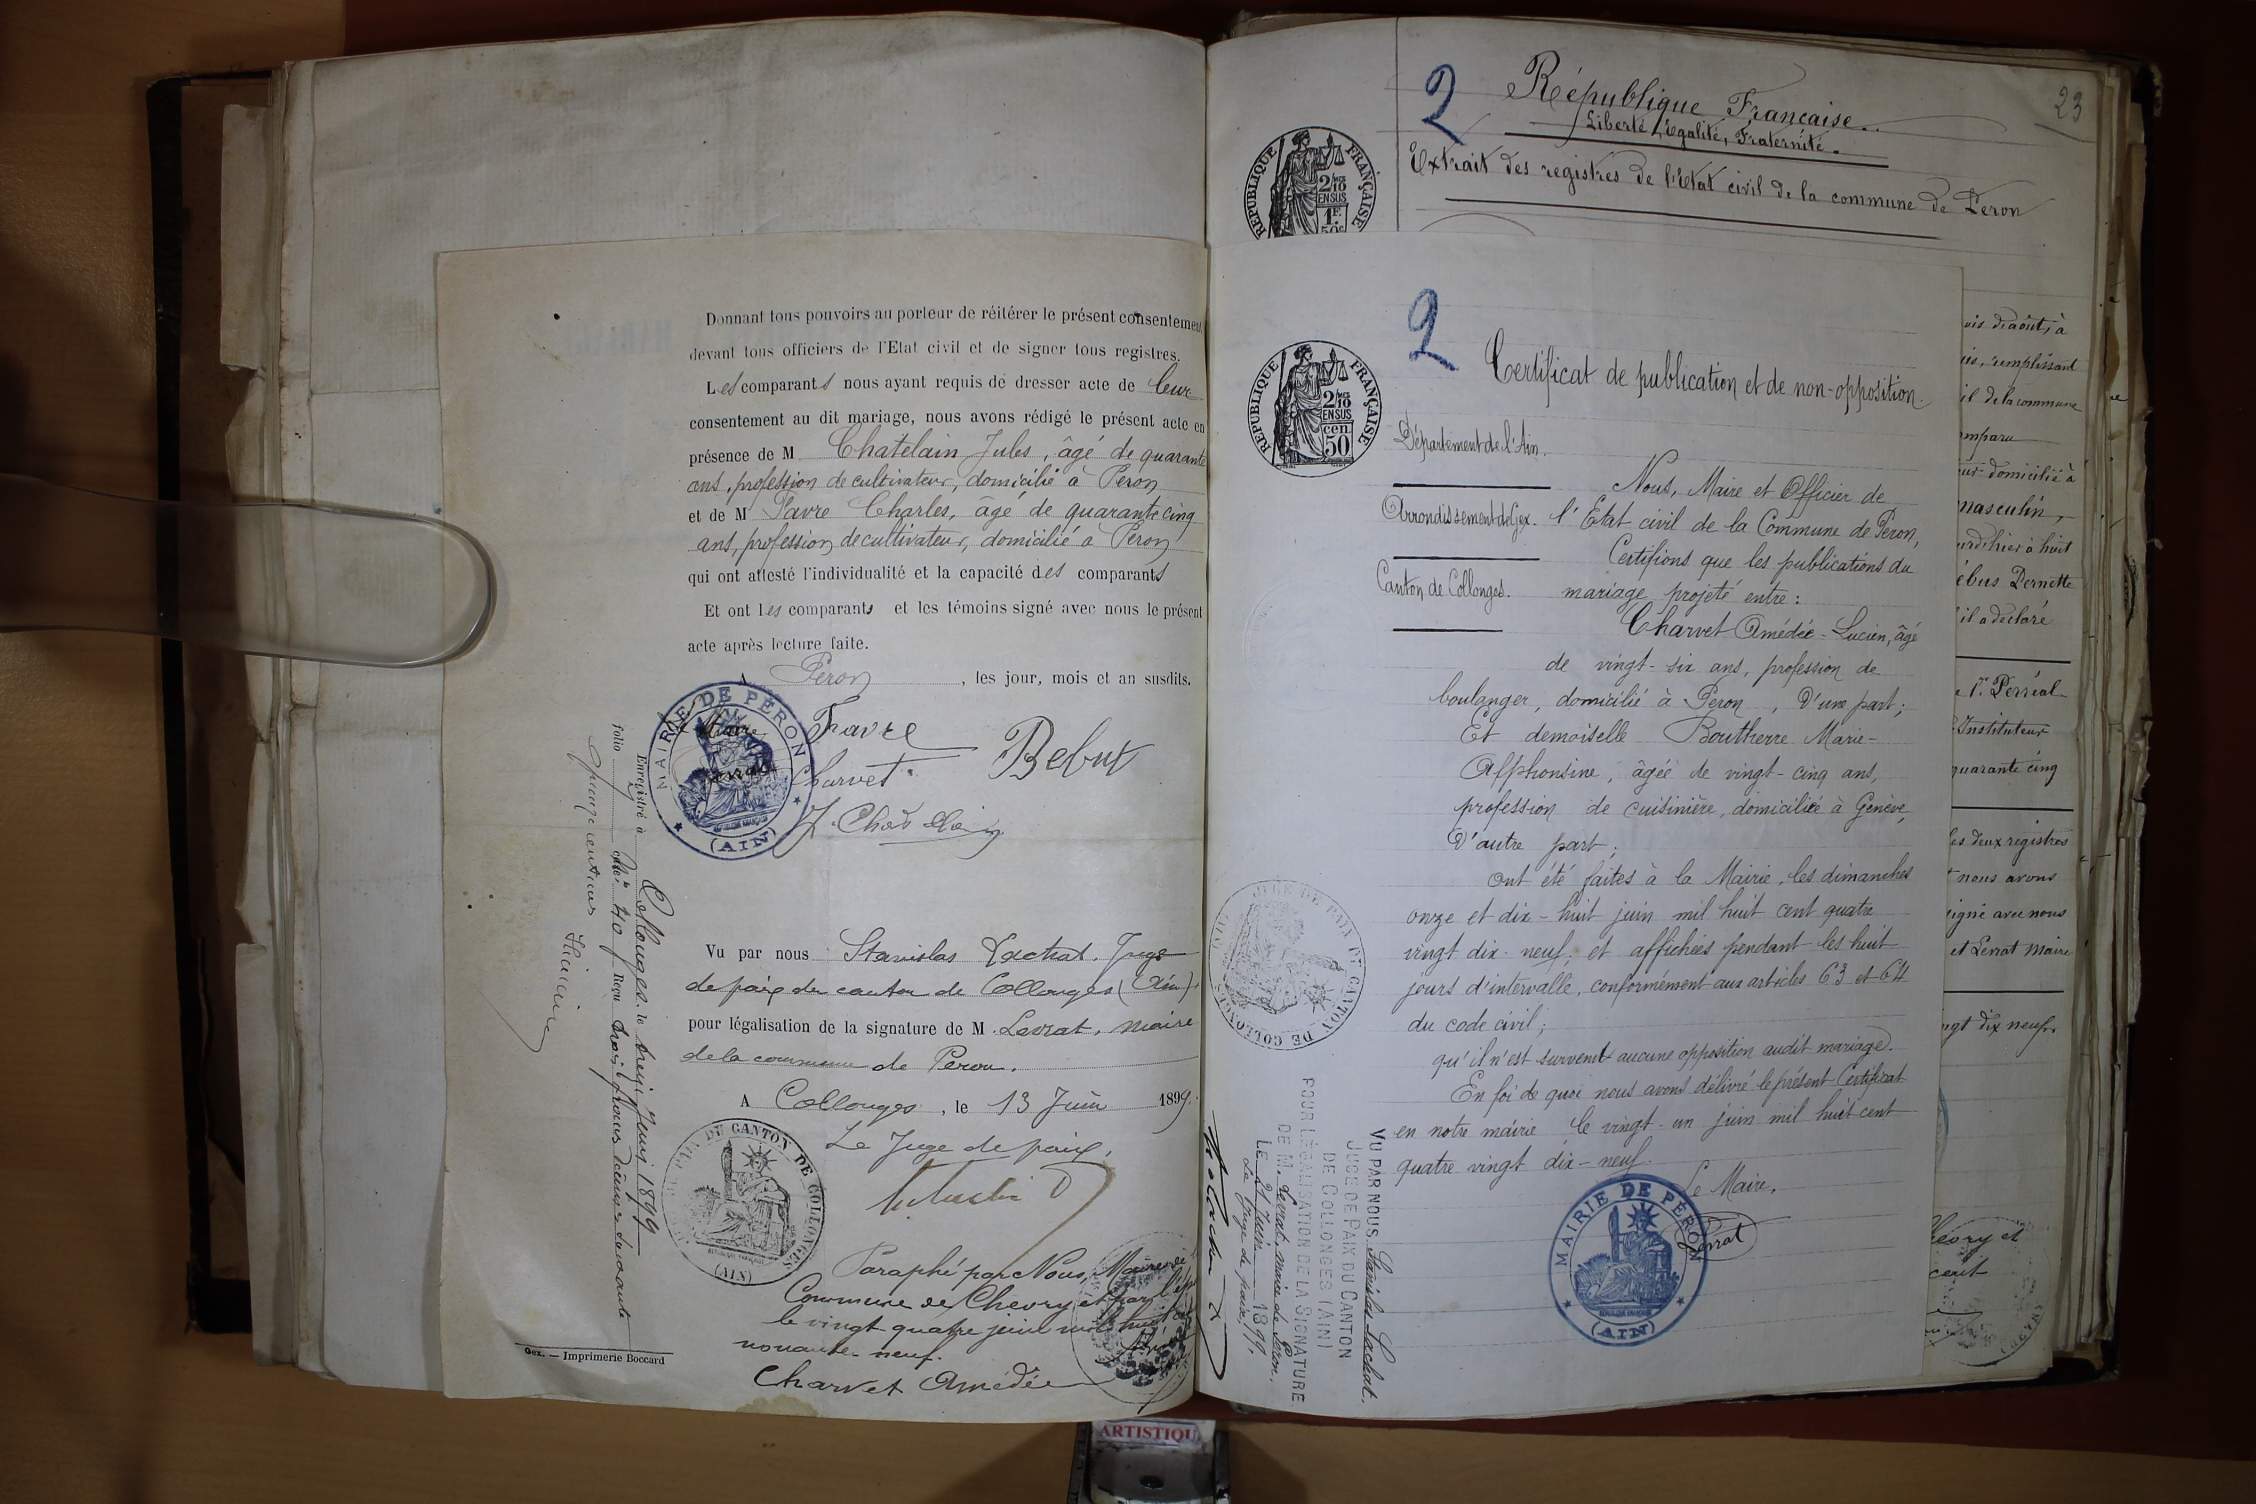 Donnant tous pouvoirs au porteur de réitérer le présent consentement
devant tous officiers de l'Etat civil et de signer tous registres.
Les comparants nous ayant requis de dresser acte de leur
consentement au dit mariage, nous avons rédigé le présent acte en
présence de M Chatelain Jules, âgé de quarante
ans, profession de cultivateur, domicilié à Peron
et de M Favre Charles, âgé de quarante cinq
ans, profession de cultivateur, domicilié à Peron
qui ont attesté l'individualité et la capacité des comparants
Et ont les comparants et les témoins signé avec nous le présent
acte après lecture faite.
A Peron, les jour, mois et an susdits.
MAIRIE DE PÉRON
(AIN)
Favre
Charvet
Bebut
Enregistré à Collonges, le treize Juin 1899
folio Reçu trois francs
Vu par nous Stanislas Lachat, Juge
de paix du canton de Collonges (Ain)
pour légalisation de la signature de M. Levrat, maire
de la commune de Peron.
A Collonges, le 13 Juin 1899.
Le Juge de paix,
DU CANTON DE COLLONGES
(AIN)
Paraphé par Nous, Maire de
Commune de Chevry et par
le vingt quatre juin mil huit
nonante neuf.
Charvet Amédée
Gex. — Imprimerie Boccard
2
23
République Francaise.
Liberté, Egalité, Fraternité.
Extrait des registres de l'Etat civil de la commune de Peron
REPUBLIQUE FRANÇAISE
2/10
EN SUS
1F.
50c
2
REPUBLIQUE FRANÇAISE
2/10
EN SUS
cen.
50
Certificat de publication et de non-opposition.
Département de l'Ain.
Arrondissement de Gex.
Canton de Collonges.
Nous, Maire et Officier de
l'Etat civil de la Commune de Peron,
Certifions que les publications du
mariage projeté entre:
Charvet Amédée-Lucien, âgé
de vingt-six ans, profession de
boulanger, domicilié à Peron, d'une part;
Et demoiselle Boutherre Marie-
Alphonsine, âgée de vingt-cinq ans,
profession de cuisinière, domiciliée à Genève,
d'autre part;
ont été faites à la Mairie, les dimanches
onze et dix-huit juin mil huit cent quatre
vingt dix-neuf, et affichées pendant les huit
jours d'intervalle, conformément aux articles 63 et 64
du code civil;
qu'il n'est survenu aucune opposition audit mariage.
En foi de quoi nous avons délivré le présent Certificat
en notre mairie le vingt-un juin mil huit cent
quatre vingt dix-neuf.
Le Maire,
Levrat
MAIRIE DE PÉRON
(AIN)
VU PAR NOUS Stanislas Lachat,
JUGE DE PAIX DU CANTON
DE COLLONGES (AIN)
POUR LÉGALISATION DE LA SIGNATURE
DE M. Levrat, maire de Peron.
LE 21 Juin 1899.
Le Juge de paix,
DE PAIX DU CANTON DE COLLONGES
d'août, à
remplissant
de la commune
domicilié à
masculin,
à huit
Pernette
il a déclaré
Perréal
Instituteur
quarante cinq
deux registres
nous avons
signé avec nous
et Levrat Maire
dix neuf.
ARTISTIQU